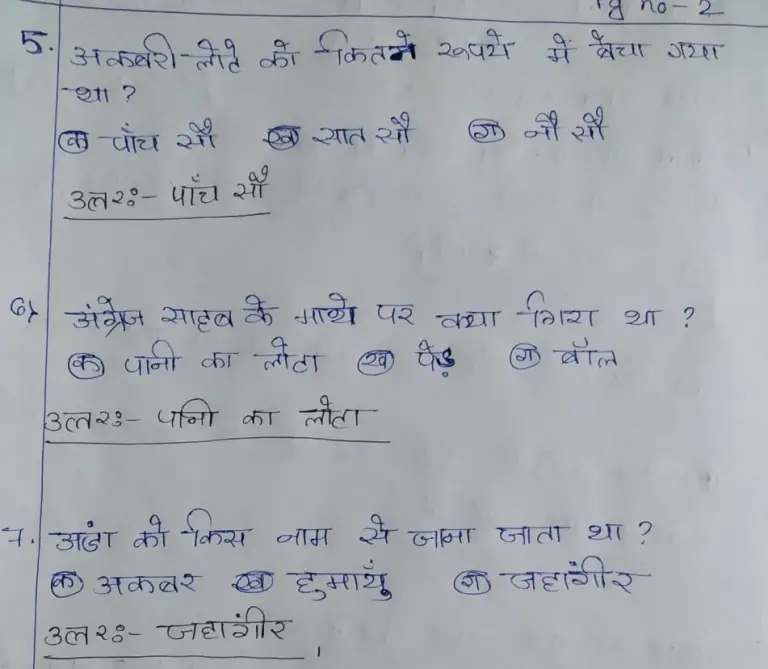 Pg no - 2
5. अकबरी लोटे को कितने रूपये में बेचा गया
था ?
(क) पाँच सौ (ख) सात सौ (ग) नौ सौ
उत्तरः- पाँच सौ
6) अंग्रेज साहब के माथे पर क्या गिरा था ?
(क) पानी का लोटा (ख) पेड़ (ग) बॉल
उत्तरः- पानी का लोटा
7. अंडा को किस नाम से जाना जाता था ?
(क) अकबर (ख) हुमायुँ (ग) जहांगीर
उत्तरः- जहांगीर